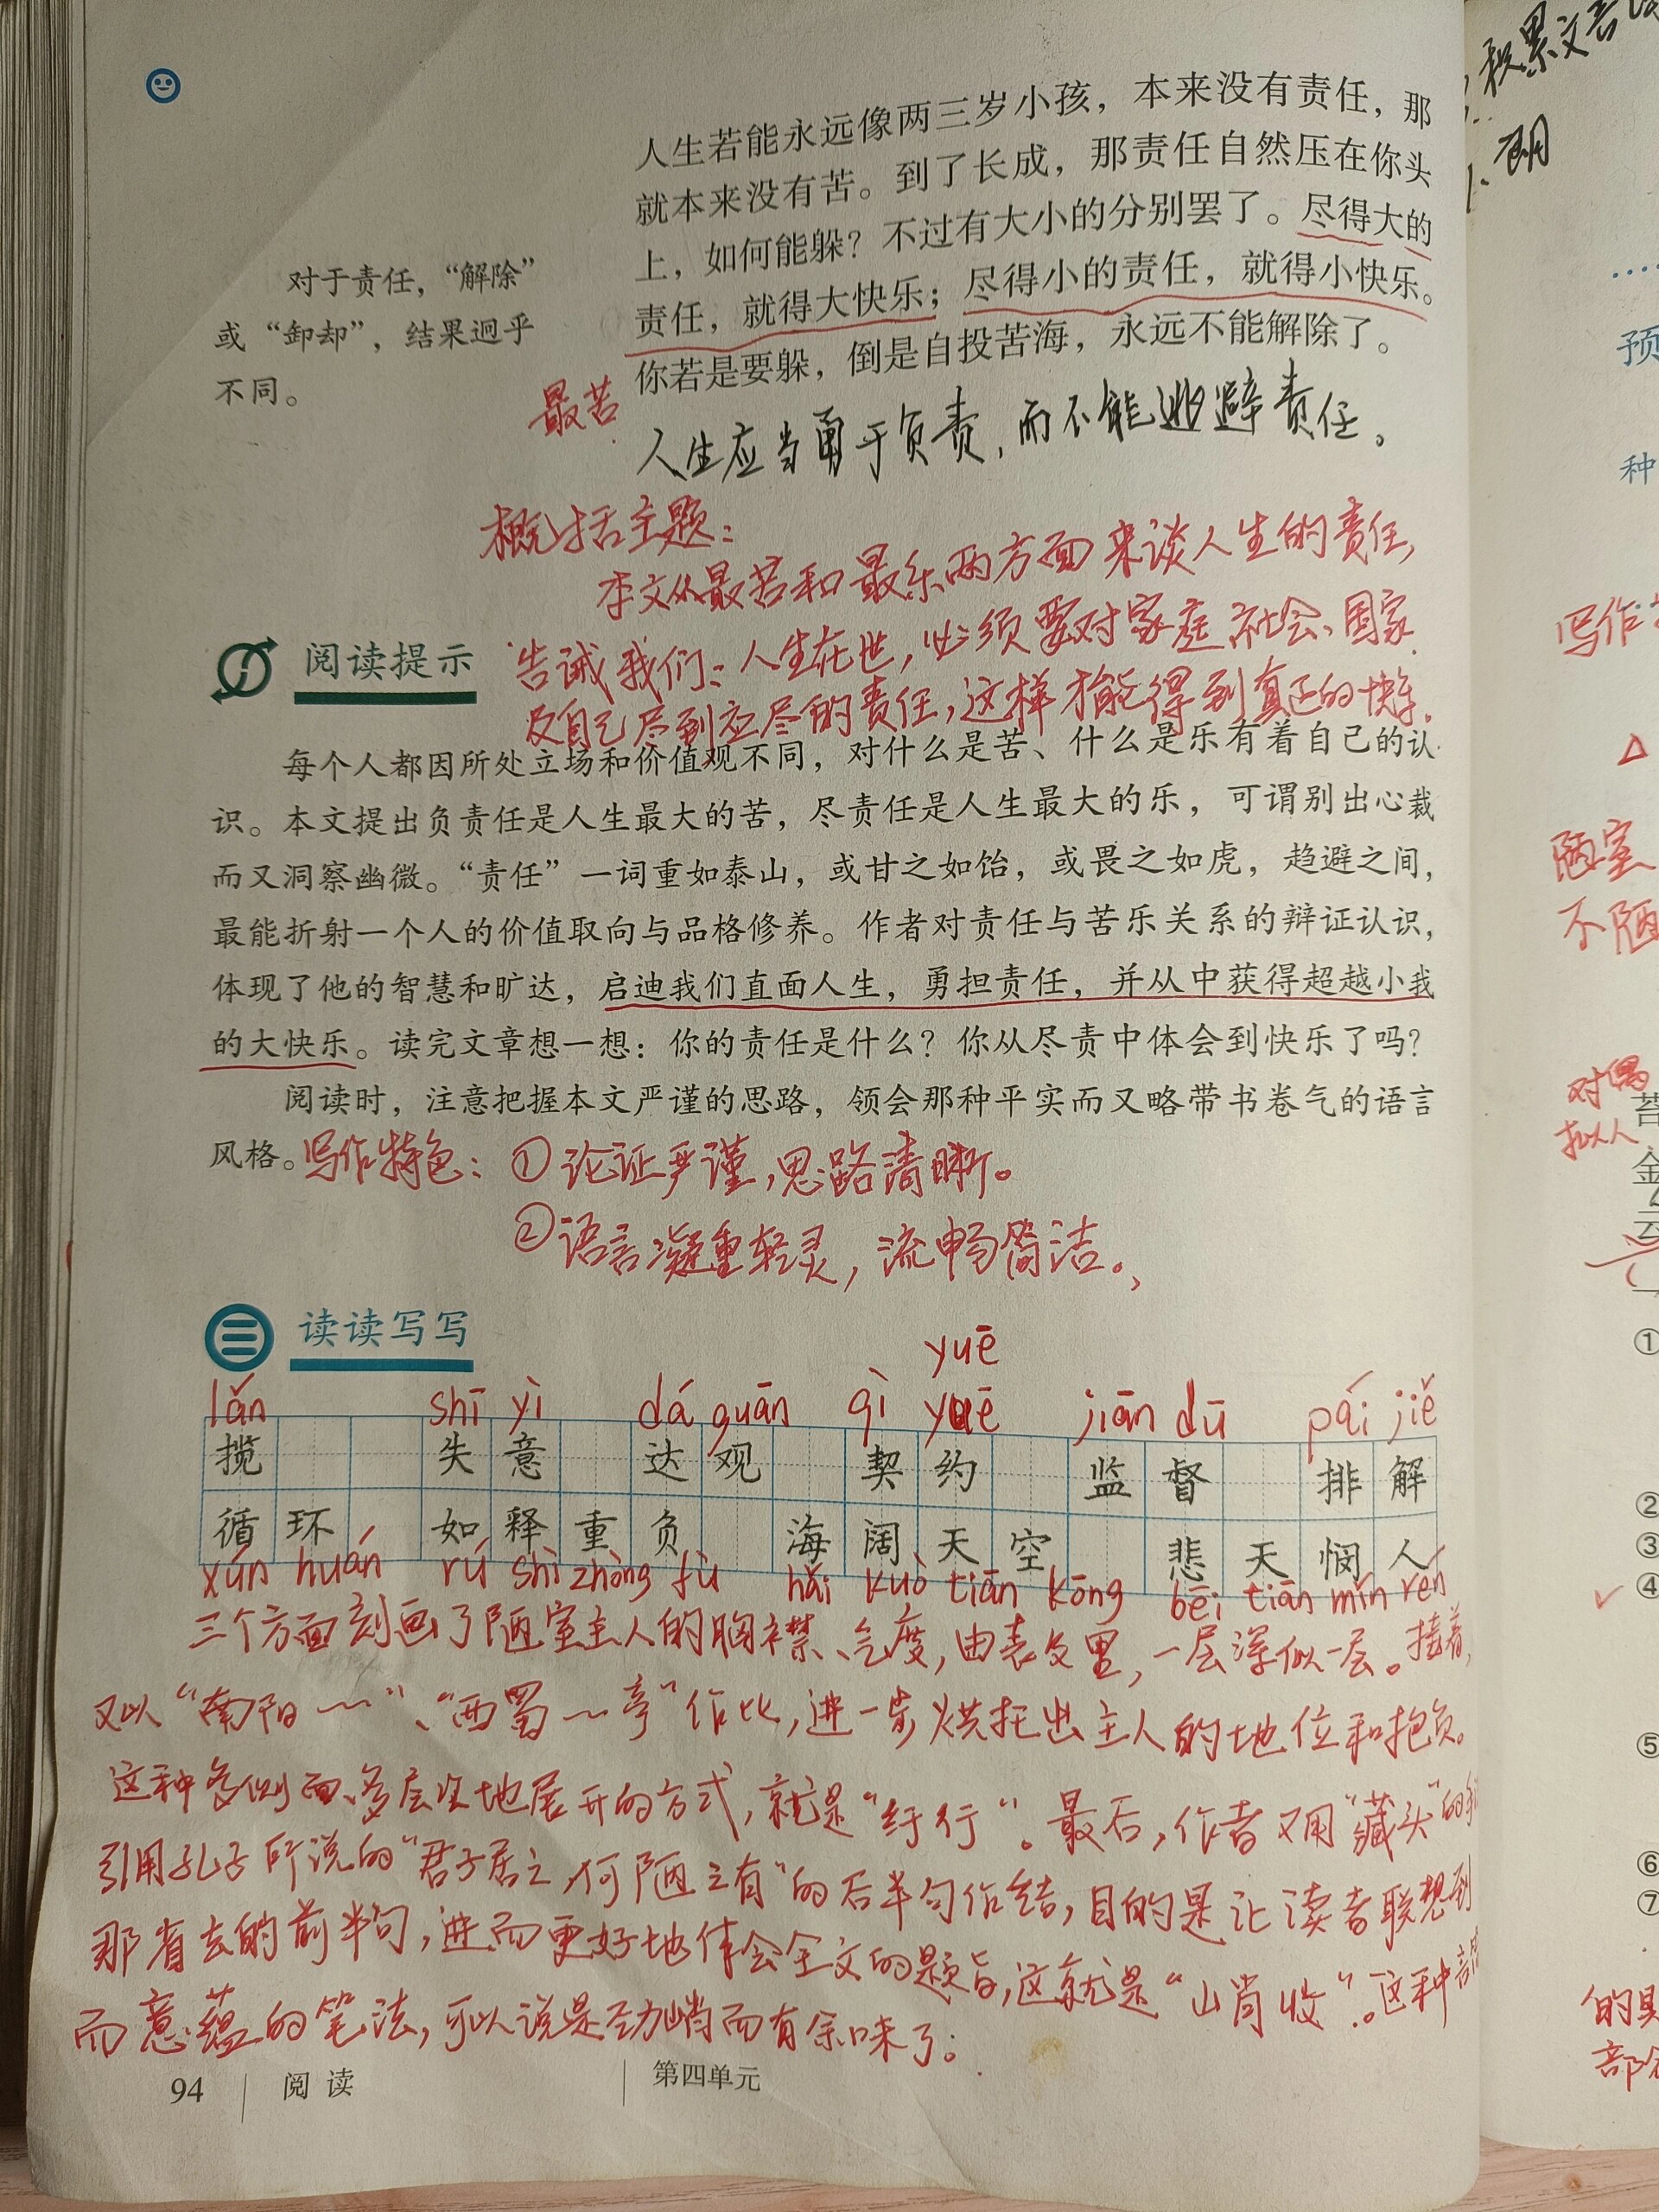 人生若能永远像两三岁小孩，本来没有责任，那
就本来没有苦。到了长成，那责任自然压在你头
上，如何能躲？不过有大小的分别罢了。尽得大的
责任，就得大快乐；尽得小的责任，就得小快乐。
你若是要躲，倒是自投苦海，永远不能解除了。
对于责任，“解除”
或“卸却”，结果迥乎
不同。
最苦
人生应当勇于负责，而不能逃避责任。
概括主题：
本文从最苦和最乐两方面来谈人生的责任，
告诫我们：人生在世，必须要对家庭、社会、国家
及自己尽到应尽的责任，这样才能得到真正的快乐。
阅读提示
每个人都因所处立场和价值观不同，对什么是苦、什么是乐有着自己的认
识。本文提出负责任是人生最大的苦，尽责任是人生最大的乐，可谓别出心裁
而又洞察幽微。“责任”一词重如泰山，或甘之如饴，或畏之如虎，趋避之间，
最能折射一个人的价值取向与品格修养。作者对责任与苦乐关系的辩证认识，
体现了他的智慧和旷达，启迪我们直面人生，勇担责任，并从中获得超越小我
的大快乐。读完文章想一想：你的责任是什么？你从尽责中体会到快乐了吗？
阅读时，注意把握本文严谨的思路，领会那种平实而又略带书卷气的语言
风格。写作特色：①论证严谨，思路清晰。
②语言凝重轻灵，流畅简洁。
读读写写
yuē
lǎn shī yì dá guān qì yuē jiān dū pái jiě
揽 失意 达观 契约 监督 排解
循环 如释重负 海阔天空 悲天悯人
xún huán rú shì zhòng fù hǎi kuò tiān kōng bēi tiān mǐn rén
三个方面刻画了陋室主人的胸襟、气度，由表及里，一层深似一层。接着，
又以“南阳～”、“西蜀～亭”作比，进一步烘托出主人的地位和抱负。
这种多侧面、多层次地展开的方式，就是“纡行”。最后，作者又用“藏头”的
引用孔子所说的“君子居之，何陋之有”的后半句作结，目的是让读者联想到
那省去的前半句，进而更好地体会全文的题旨，这就是“山肖收”。这种言
而意蕴的笔法，可以说是劲峭而有余味了。
94 阅读 第四单元
积累文言
预
种
写作
陋室
不陋
对偶
拟人
苔
金
云
①
②
③
④
⑤
⑥
⑦
的
部